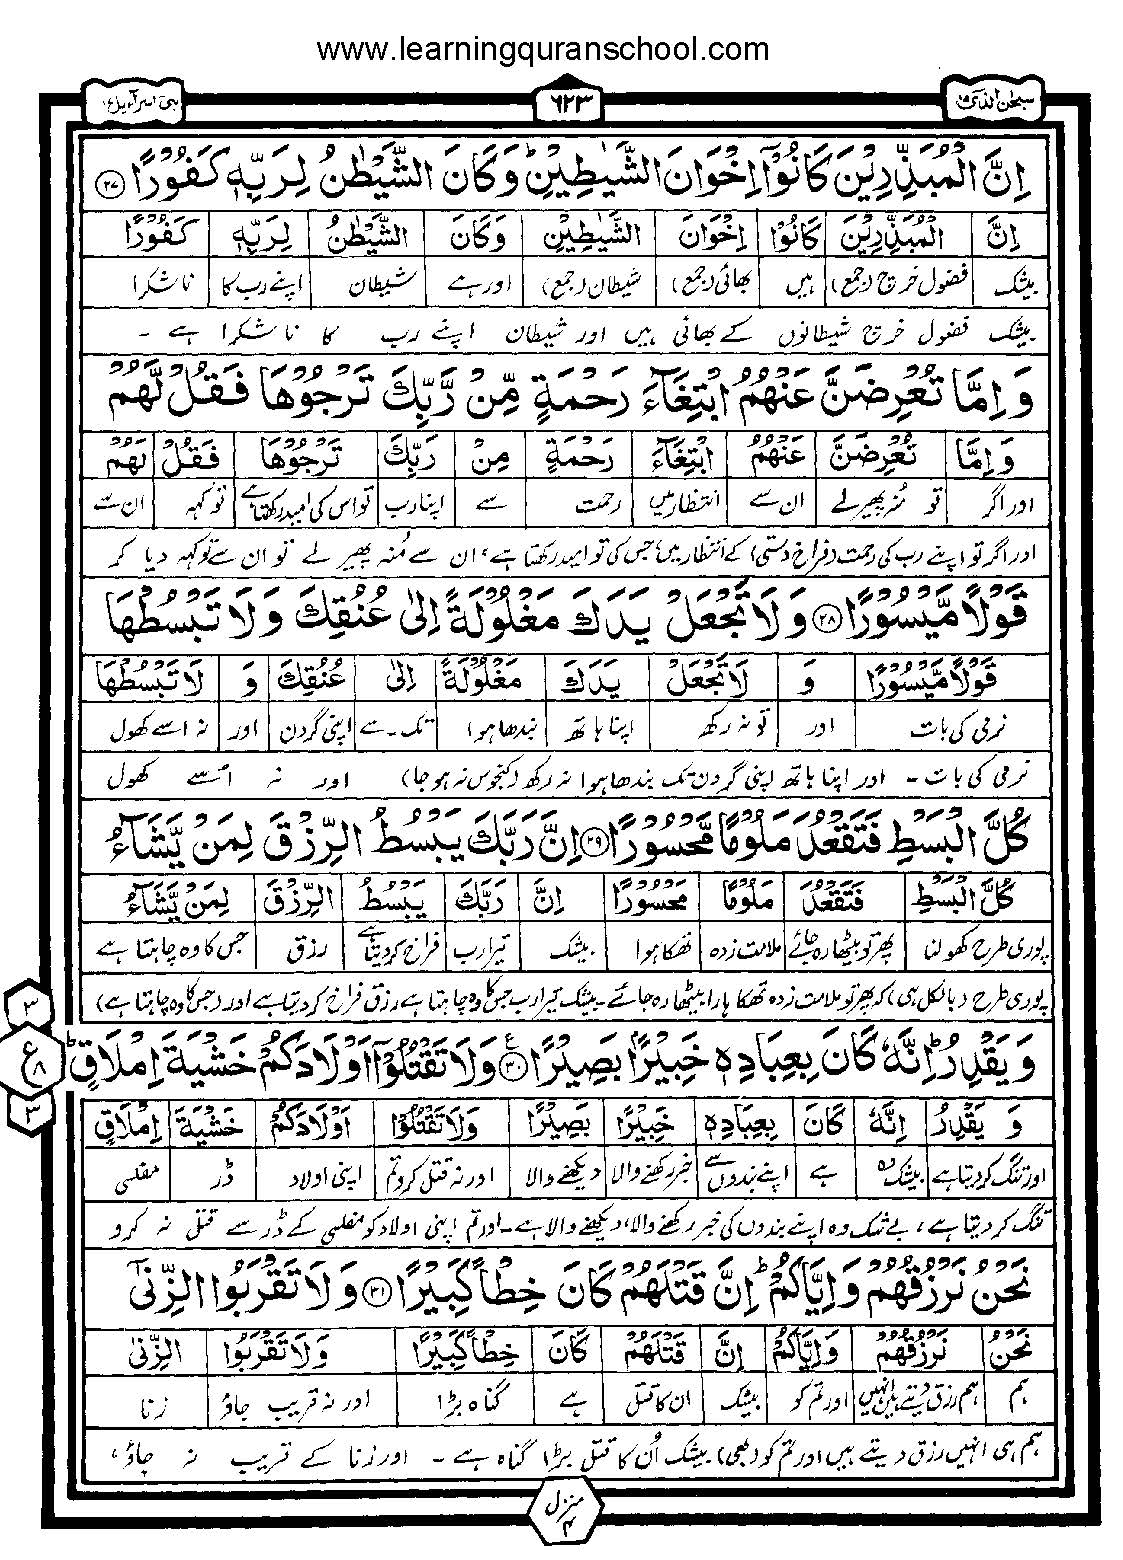 www.learningquranschool.com
سبحٰن الذی ۱۵
۶۲۳
بنی اسرآءیل ۱۷
اِنَّ الْمُبَذِّرِیْنَ كَانُوْۤا اِخْوَانَ الشَّیٰطِیْنِ ؕ وَكَانَ الشَّیْطٰنُ لِرَبِّهٖ كَفُوْرًا ۲۷
اِنَّ الْمُبَذِّرِیْنَ كَانُوْا اِخْوَانَ الشَّیٰطِیْنِ وَكَانَ الشَّیْطٰنُ لِرَبِّهٖ كَفُوْرًا
بیشک فضول خرچ (جمع) ہیں بھائی (جمع) شیطان (جمع) اور ہے شیطان اپنے رب کا ناشکرا
بیشک فضول خرچ شیطانوں کے بھائی ہیں اور شیطان اپنے رب کا ناشکرا ہے ۔
وَاِمَّا تُعْرِضَنَّ عَنْهُمُ ابْتِغَآءَ رَحْمَةٍ مِّنْ رَّبِّكَ تَرْجُوْهَا فَقُلْ لَّهُمْ
وَاِمَّا تُعْرِضَنَّ عَنْهُمُ ابْتِغَآءَ رَحْمَةٍ مِنْ رَبِّكَ تَرْجُوْهَا فَقُلْ لَهُمْ
اور اگر تو منہ پھیر لے ان سے انتظار میں رحمت سے اپنا رب تو اس کی امید رکھتا ہے تو کہہ ان سے
اور اگر تو اپنے رب کی رحمت (فراخ دستی) کے انتظار میں جس کی تو امید رکھتا ہے، ان سے مُنہ پھیر لے تو ان سے تو کہہ دیا کر
قَوْلًا مَّیْسُوْرًا ۲۸ وَلَا تَجْعَلْ یَدَكَ مَغْلُوْلَةً اِلٰی عُنُقِكَ وَلَا تَبْسُطْهَا
قَوْلًا مَّیْسُوْرًا وَ لَا تَجْعَلْ یَدَكَ مَغْلُوْلَةً اِلٰی عُنُقِكَ وَ لَا تَبْسُطْهَا
نرمی کی بات اور تو نہ رکھ اپنا ہاتھ بندھا ہوا تک ۔ سے اپنی گردن اور نہ اسے کھول
نرمی کی بات ۔ اور اپنا ہاتھ اپنی گردن تک بندھا ہوا نہ رکھ (کنجوس نہ ہو جا) اور نہ اُسے کھول
كُلَّ الْبَسْطِ فَتَقْعُدَ مَلُوْمًا مَّحْسُوْرًا ۲۹ اِنَّ رَبَّكَ یَبْسُطُ الرِّزْقَ لِمَنْ یَّشَآءُ
كُلَّ الْبَسْطِ فَتَقْعُدَ مَلُوْمًا مَحْسُوْرًا اِنَّ رَبَّكَ یَبْسُطُ الرِّزْقَ لِمَنْ یَّشَآءُ
پوری طرح کھولنا پھر تو بیٹھا رہ جائے ملامت زدہ تھکا ہوا بیشک تیرا رب فراخ کر دیتا ہے رزق جس کا وہ چاہتا ہے
پوری طرح (بالکل ہی) کہ پھر تو ملامت زدہ تھکا ہارا بیٹھا رہ جائے ۔ بیشک تیرا رب جس کا وہ چاہتا ہے رزق فراخ کر دیتا ہے اور (جس کا وہ چاہتا ہے)
وَیَقْدِرُ ؕ اِنَّهٗ كَانَ بِعِبَادِهٖ خَبِیْرًۢا بَصِیْرًا ۳۰ ع وَلَا تَقْتُلُوْۤا اَوْلَادَكُمْ خَشْیَةَ اِمْلَاقٍ ؕ
۳ ع ۸ ۳
وَ یَقْدِرُ اِنَّهٗ كَانَ بِعِبَادِهٖ خَبِیْرًا بَصِیْرًا وَلَا تَقْتُلُوْا اَوْلَادَكُمْ خَشْیَةَ اِمْلَاقٍ
اور تنگ کر دیتا ہے بیشک وہ ہے اپنے بندوں سے خبر رکھنے والا دیکھنے والا اور نہ قتل کرو تم اپنی اولاد ڈر مفلسی
تنگ کر دیتا ہے، بے شک وہ اپنے بندوں کی خبر رکھنے والا، دیکھنے والا ہے ۔ اور تم اپنی اولاد کو مفلسی کے ڈر سے قتل نہ کرو
نَحْنُ نَرْزُقُهُمْ وَاِیَّاكُمْ ؕ اِنَّ قَتْلَهُمْ كَانَ خِطْاً كَبِیْرًا ۳۱ وَلَا تَقْرَبُوا الزِّنٰۤی
نَحْنُ نَرْزُقُهُمْ وَاِیَّاكُمْ اِنَّ قَتْلَهُمْ كَانَ خِطْاً كَبِیْرًا وَلَا تَقْرَبُوا الزِّنٰی
ہم ہم رزق دیتے ہیں انہیں اور تم کو بیشک ان کا قتل ہے گناہ بڑا اور نہ قریب جاؤ زنا
ہم ہی انہیں رزق دیتے ہیں اور تم کو (بھی) بیشک اُن کا قتل بڑا گناہ ہے ۔ اور زنا کے قریب نہ جاؤ،
منزل ۴